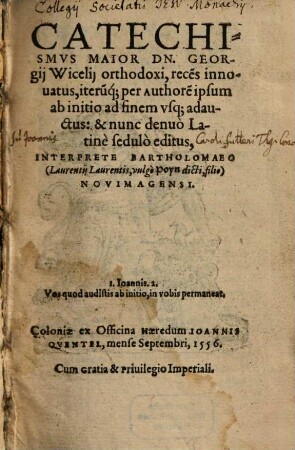 Collegij Societatis IESV Monachij
CATECHI-
SMVS MAIOR DN. GEOR-
gij Wicelij orthodoxi, recēs inno-
uatus, iterūq; per Authorē ipsum
ab initio ad finem vsq; adau-
ctus: & nunc denuò La-
tinè sedulò editus,
INTERPRETE BARTHOLOMAEO
(Laurentij Laurentis, vulgò Poyn dicti, filio)
NOVIMAGENSI.
1. Ioannis. 2.
Vos quod audistis ab initio, in vobis permaneat.
Coloniæ ex Officina Hæredum IOANNIS
QVENTEL, mense Septembri, 1556.
Cum Gratia & Priuilegio Imperiali.